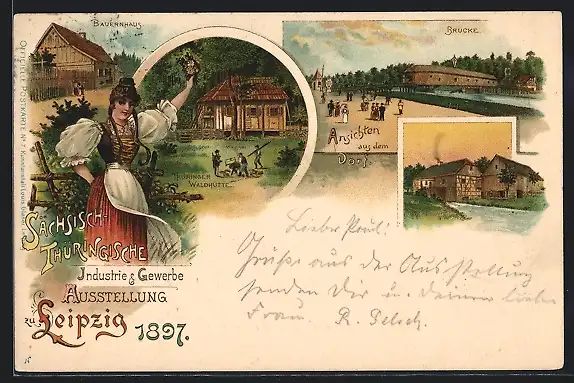 BAUERNHAUS
BRÜCKE
Ansichten
aus dem
Dorf.
THÜRINGER
WALDHÜTTE
OFFICIELLE POSTKARTE No 7
SÄCHSISCH-
THÜRINGISCHE
Industrie & Gewerbe
AUSSTELLUNG
zu Leipzig 1897.
Liebe Paul!
Grüße aus der Ausstellung
senden Dir u. Deiner lieben
Frau. R.